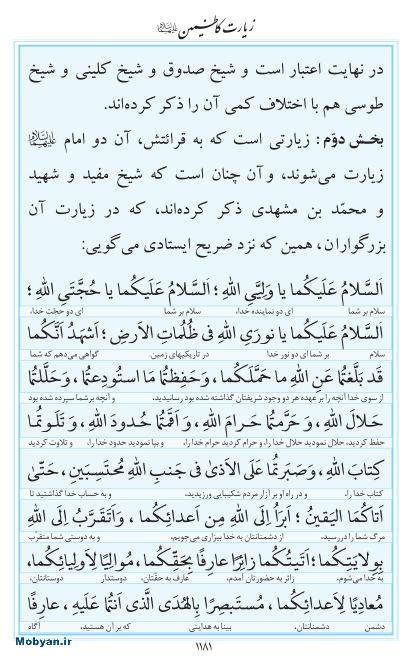 زیارت کاظمین علیهماالسلام
در نهایت اعتبار است و شیخ صدوق و شیخ کلینی و شیخ
طوسی هم با اختلاف کمی آن را ذکر کرده‌اند.
بخش دوّم: زیارتی است که به قرائتش، آن دو امام علیهماالسلام
زیارت می‌شوند، و آن چنان است که شیخ مفید و شهید
و محمّد بن مشهدی ذکر کرده‌اند، که در زیارت آن
بزرگواران، همین که نزد ضریح ایستادی می‌گویی:
اَلسَّلامُ عَلَیْکُما یا وَلِیَّیِ اللّٰهِ؛ اَلسَّلامُ عَلَیْکُما یا حُجَّتَیِ اللّٰهِ؛
سلام بر شما ای دو نماینده خدا، سلام بر شما ای دو حجّت خدا،
اَلسَّلامُ عَلَیْکُما یا نُورَیِ اللّٰهِ فی ظُلُماتِ الْاَرْضِ؛ اَشْهَدُ اَنَّکُما
سلام بر شما ای دو نور خدا در تاریکیهای زمین. گواهی می‌دهم که شما
قَدْ بَلَّغْتُما عَنِ اللّٰهِ ما حَمَّلَکُما، وَحَفِظْتُما مَا اسْتُودِعْتُما، وَحَلَّلْتُما
از سوی خدا آنچه را بر عهده هر دو وجود شریفتان گذاشته شده بود رسانیدید، و آنچه بر شما سپرده شده بود
حَلالَ اللّٰهِ، وَ حَرَّمْتُما حَرامَ اللّٰهِ، وَ اَقَمْتُما حُدُودَ اللّٰهِ، وَ تَلَوْتُما
حفظ کردید، حلال نمودید حلال خدا را، و حرام کردید حرام خدا را، و بپا نمودید حدود خدا را، و تلاوت کردید
کِتابَ اللّٰهِ، وَ صَبَرْتُما عَلَی الْاَذیٰ فی جَنْبِ اللّٰهِ مُحْتَسِبَیْنِ، حَتّیٰ
کتاب خدا را، و در راه او بر آزار مردم شکیبایی ورزیدید، و به حساب خدا گذاشتید تا
اَتاکُمَا الْیَقینُ؛ اَبْرَأُ اِلَی اللّٰهِ مِنْ اَعْدائِکُما، وَاَتَقَرَّبُ اِلَی اللّٰهِ
مرگ شما را در رسید. از دشمنانتان به خدا بیزاری می‌جویم، و به دوستی شما متقرب
بِوِلایَتِکُما؛ اَتَیْتُکُما زائِرًا عارِفًا بِحَقِّکُما، مُوالِیًا لِاَوْلِیائِکُما،
به خدا می‌شوم. زائر به حضورتان آمدم، عارف به حقّتان، دوستدار دوستانتان،
مُعادِیًا لِاَعْدائِکُما، مُسْتَبْصِرًا بِالْهُدَی الَّذی اَنْتُما عَلَیْهِ، عارِفًا
دشمن دشمنانتان، بینا به هدایتی که بر آن هستید، آگاه
۱۱۸۱
Mobyan.ir